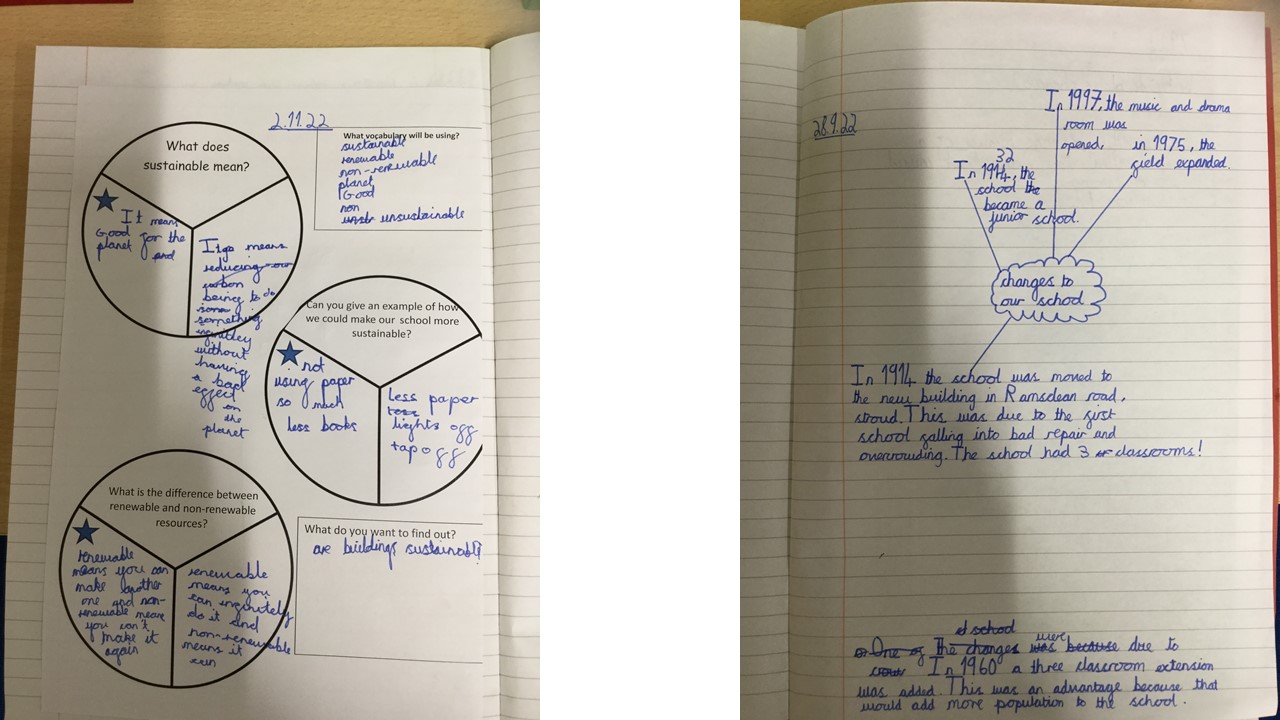 2.11.22
What does
sustainable mean?
It means
Good for the
planet and
It go means
reducing our
carbon
being to do
some
something
infinitley
without
having
a bad
effect
on
the
planet
What vocabulary will be using?
sustainable
renewable
non-renewable
planet
Good
non
unsustainable
Can you give an example of how
we could make our school more
sustainable?
not
using paper
so much
less books
Less paper
less
lights off
tap off
What is the difference between
renewable and non-renewable
resources?
renewable
means you can
make another
one and non-
renewable means
you can't
make it
again
renewable
means you
can infinitely
do it and
non-renewable
means it
run
What do you want to find out?
are buildings sustainabl?
28.9.22
In 1997, the music and drama
room was
opened,
in 1975, the
field expanded.
32
In 1914, the
school the
became a
junior school.
changes to
our school
In 1914 the school was moved to
the new building in Ramsdean road,
stroud. This was due to the first
school falling into bad repair and
overcrowding. The school had 3 classrooms!
school
One of The changes was were because due to
In 1960 a three classroom extension
was added. This was an advantage because that
would add more population to the school.